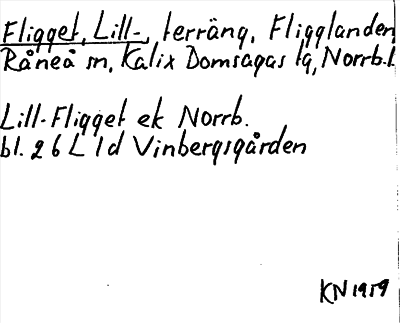 Fligget, Lill-, terräng, Fligglanden
Råneå sn, Kalix Domsagas tg, Norrb.l.
Lill-Fligget ek Norrb.
bl. 26 L 1d Vinbergsgården
KN 1959